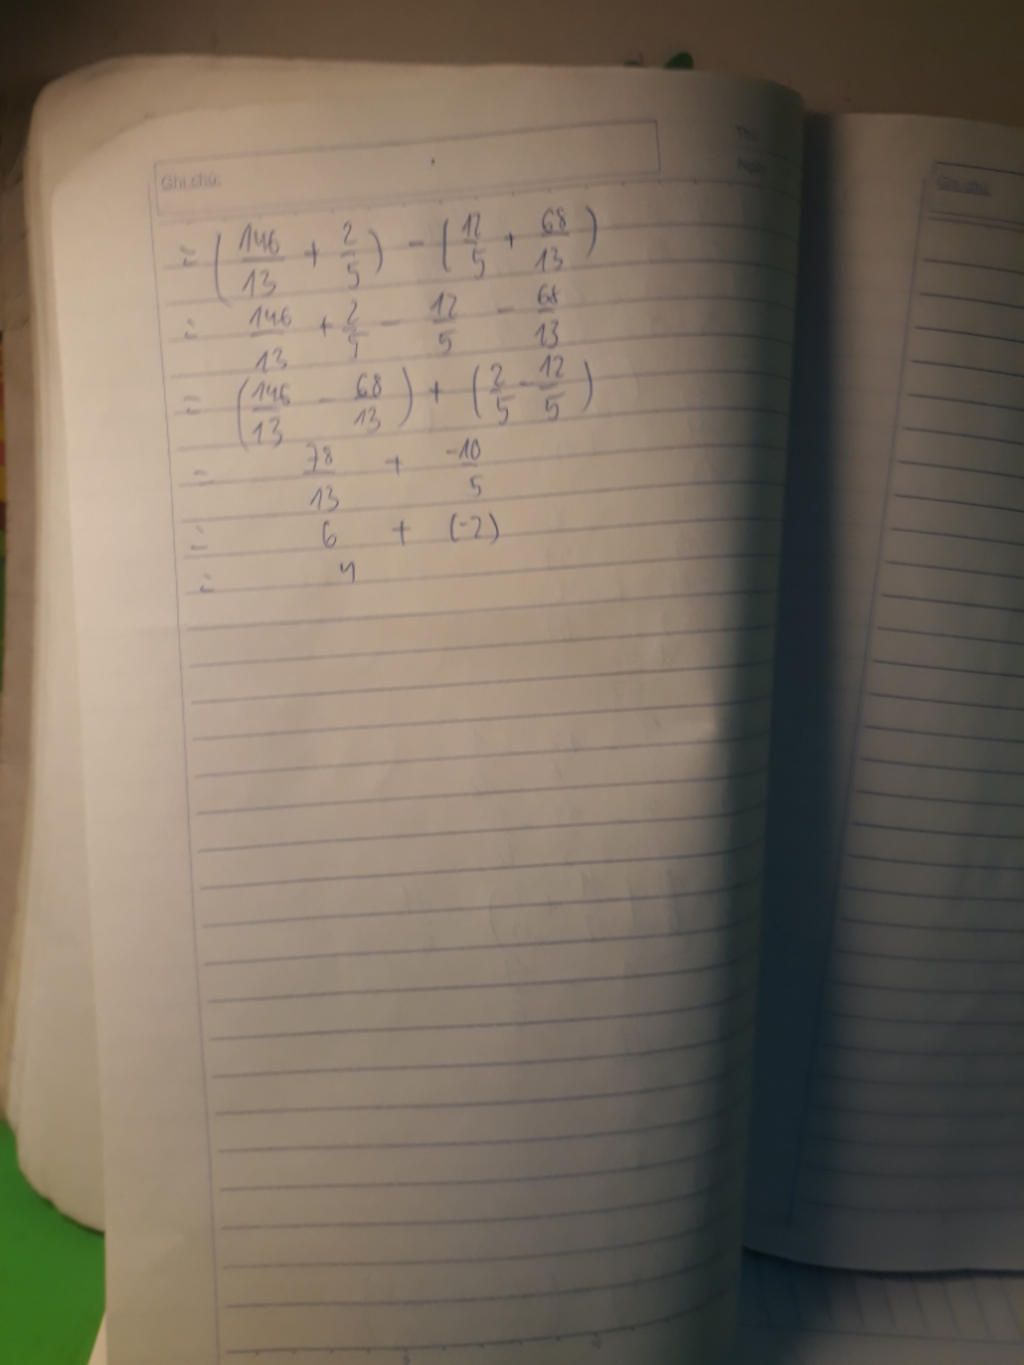 Ghi chú:
Thứ
Ngày
= (146/13 + 2/5) - (12/5 + 68/13)
= 146/13 + 2/5 - 12/5 - 68/13
= (146/13 - 68/13) + (2/5 - 12/5)
= 78/13 + -10/5
= 6 + (-2)
= 4
Ghi chú: